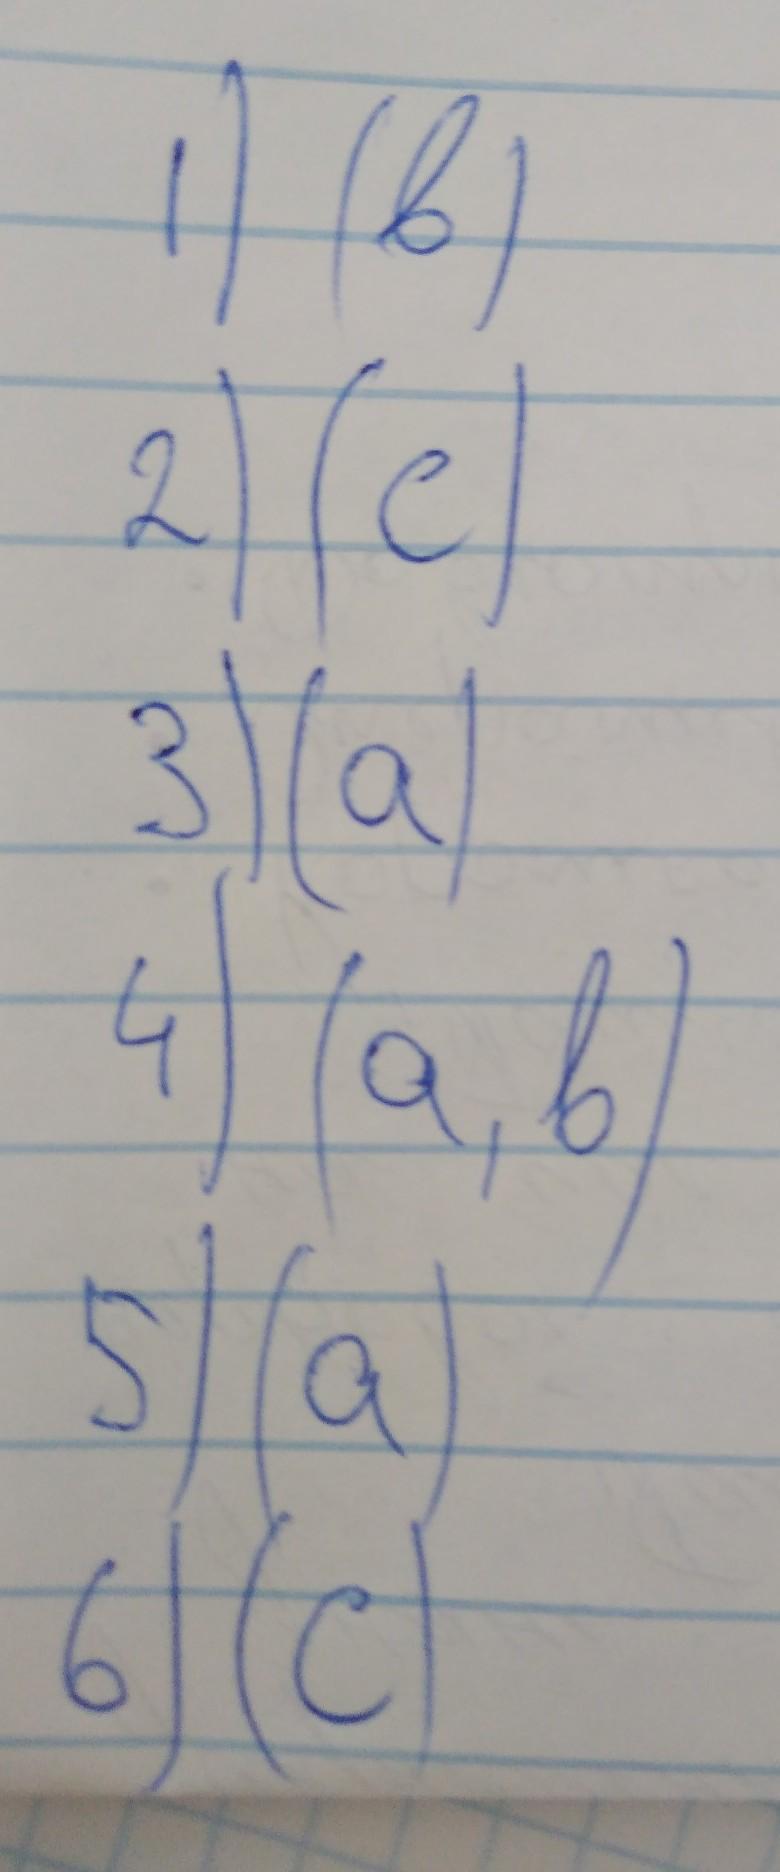 1) (b)
2) (c)
3) (a)
4) (a, b)
5) (a)
6) (c)